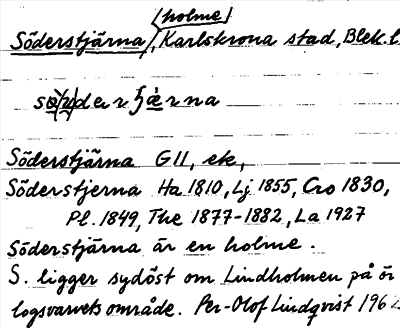 (holme)
Söderstjärna, Karlskrona stad, Blek. l
Söderstjärna GII, ek,
Söderstjerna Ha 1810, Lj 1855, Cro 1830,
Pl. 1849, The 1877-1882, La 1927
Söderstjärna är en holme.
S. ligger sydöst om Lindholmen på ör
logsvarvets område. Per-Olof Lindqvist 196